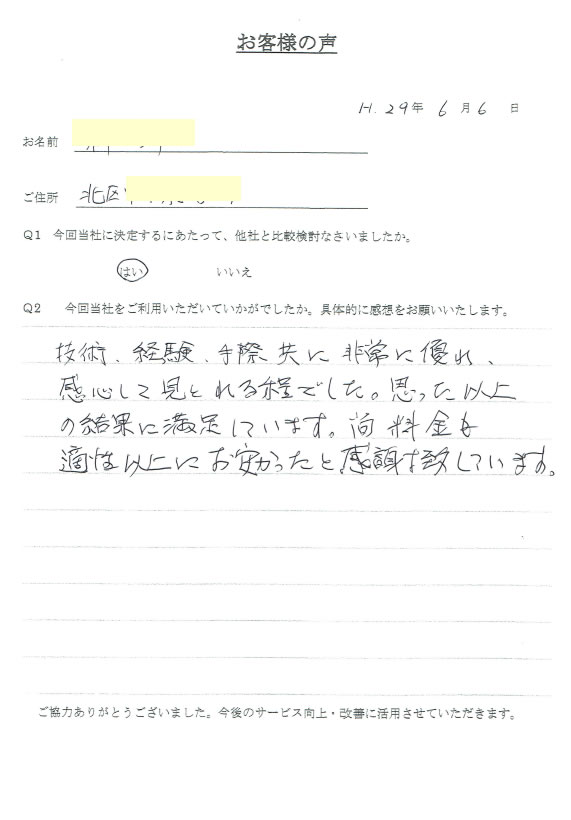 お客様の声
H.29年 6月6日
お名前
ご住所 北区
Q1 今回当社に決定するにあたって、他社と比較検討なさいましたか。
はい いいえ
Q2 今回当社をご利用いただいていかがでしたか。具体的に感想をお願いいたします。
技術、経験、手際共に非常に優れ、
感心して見とれる程でした。思った以上
の結果に満足しています。尚料金も
適性以上にお安かったと感謝致しています。
ご協力ありがとうございました。今後のサービス向上・改善に活用させていただきます。